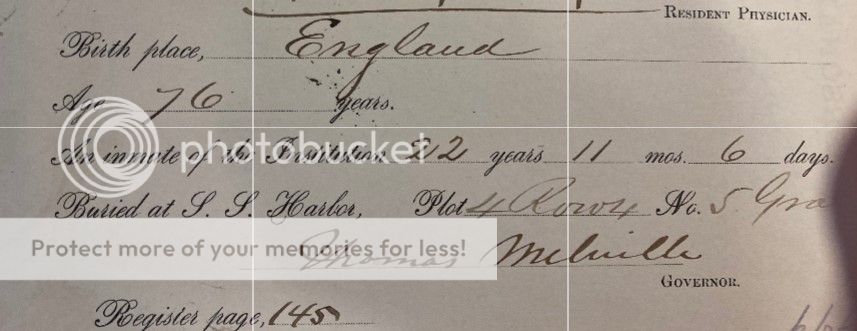 RESIDENT PHYSICIAN.
Birth place, England
Age 76 years.
An inmate of the Institution 22 years 11 mos. 6 days.
Buried at S. S. Harbor, Plot 4 Row 4 No. 5 Gra
Thomas Melville
GOVERNOR.
Register page, 145
photobucket
Protect more of your memories for less!